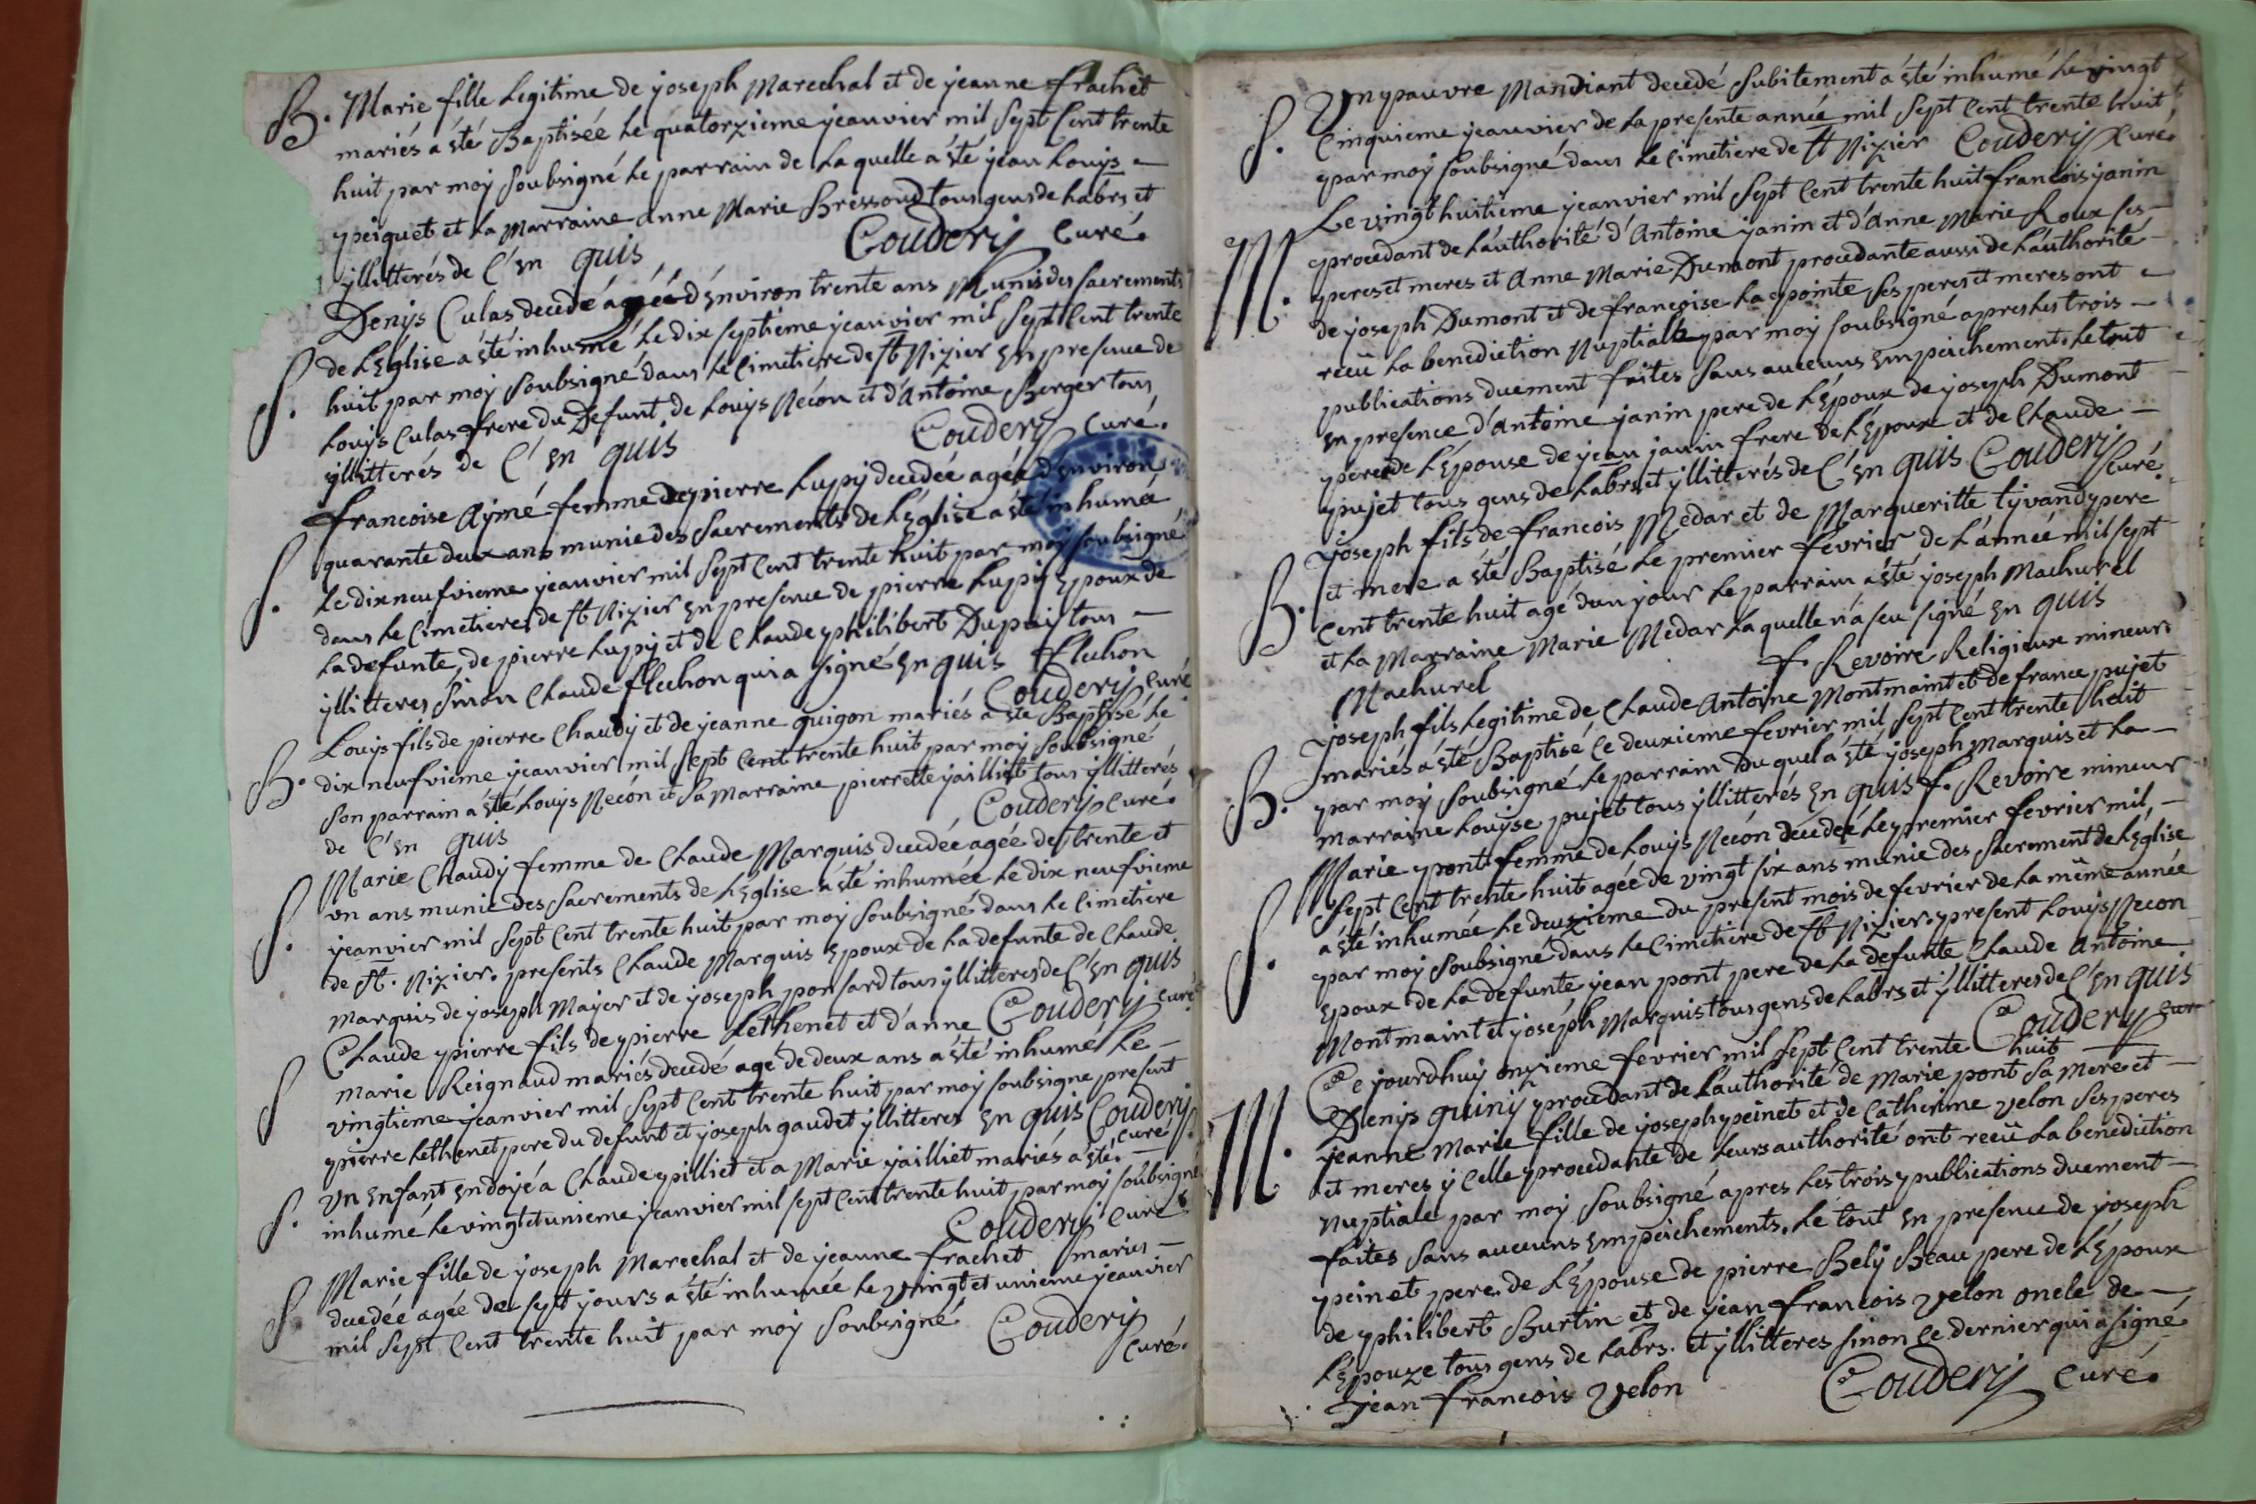 B. Marie fille Legitime de joseph Marechal et de jeanne frachet
mariés a été Baptisée Le quatorzieme jeanvier mil sept Cent trente
huit par moy soubsigné Le parrain de Laquelle a été jean Louys
peiquet et La Marraine anne Marie Bressoud tous gens de Labrs et
yllitterés de C' en quis Couderij Curé.
Denys Culas decedé agéé d'environ trente ans Munis des sacrements
de L'eglise a été inhumé Le dix septieme jeanvier mil sept Cent trente
S. huit par moy soubsigné dans Le Cimetiere de st Nizier en presence de
Louys Culas frere du Defunt, de Louys Necón et d'Antoine Berger tous
yllitterés de C' en quis Couderij Curé.
francoise Aymé femme de pierre Lupy decedée agée d'environ
quarante deux ans munie des sacrements de L'eglise a été inhumée
S. Le dix neufvieme jeanvier mil sept Cent trente huit par moy soubsigné
dans Le Cimetiere de st Nizier en presence de pierre Lupy epoux de
La defunte, de pierre Lupy et de Claude philibert Dupuy tous
yllitteres sinon Claude fluchon qui a signé en quis fluchon
Couderij Curé
Louys fils de pierre Chaudy et de jeanne guigon mariés a été Baptisé Le
B. dix neufvieme jeanvier mil sept Cent trente huit par moy soubsigné
son parrain a été Louys Necón et sa Marraine pierrette jailliet tous yllitterés
de C' en quis Couderij Curé.
Marie Chaudy femme de Claude Marquis decedée agée de trente et
un ans munie des sacrements de L'eglise a été inhumée Le dix neufvieme
S. jeanvier mil sept Cent trente huit par moy soubsigné dans Le Cimetiere
de st. Nizier. presents Claude Marquis epoux de La defunte de Claude
marquis de joseph Mayer et de joseph ponsard tous yllitteres de C' en quis
Claude pierre fils de pierre Lethenet et d'anne Couderij curé
S marie Reignaud mariés decedé agé de deux ans a été inhumé Le
vingtieme jeanvier mil sept Cent trente huit par moy soubsigne present
pierre Lethenet pere du defunt et joseph gaudet yllitteres en quis Couderij
Curé
S. Un enfant endoyé a Claude pilliet et a Marie jailliet mariés a été
inhumé Le vingt et unieme jeanvier mil sept Cent trente huit par moy soubsigné
Couderij Curé
Marie fille de joseph Marechal et de jeanne frachet mariés
S. decedée agée de sept jours a été inhumée Le vingt et unieme jeanvier
mil sept Cent trente huit par moy soubsigné Couderij
Curé.
Un pauvre Mandiant decedé subitement a été inhumé Le vingt
S. Cinquieme jeanvier de La presente année mil sept Cent trente huit
par moy soubsigné dans Le Cimetiere de st Nizier Couderij Curé.
Le vingt huitieme jeanvier mil sept Cent trente huit francois janin
M. procedant de L'authorité d'Antoine janin et d'Anne Marie Roux ses
peres et meres et Anne Marie Dumont procedante aussi de L'authorité
de joseph Dumont et de francoise La pointe, ses peres et meres ont
reçü La benediction Nuptialle par moy soubsigné apres Les trois
publications duement faites sans aucuns empeichement. Le tout
en presence d'antoine janin pere de L'epoux de joseph Dumont
pere de L'epouse de jean janin frere de L'epoux et de Claude
pujet tous gens de Labrs et yllitterés de C' en quis Couderij
Curé
joseph fils de francois Medar et de Margueritte tyvandy pere
B. et mere a été Baptisé Le premier fevrier de L'année mil sept
Cent trente huit agé d'un jour Le parrain a été joseph Machurel
et La Marraine Marie Medar Laquelle n'a seu signé en quis
Machurel f. Revoire Religieux mineur
joseph fils Legitime de Claude Antoine Montmaint et de france pujet
mariés a été Baptisé Le deuxieme fevrier mil sept Cent trente huit
B. par moy soubsigné Le parrain Duquel a été joseph Marquis et La
marraine Louyse pujet tous yllitterés en quis f. Revoire mineur
Marie pont femme de Louys Necón decedée Le premier fevrier mil
sept Cent trente huit agée de vingt six ans munie des sacrement de L'eglise
S. a été inhumée Le deuxieme du present mois de fevrier de La même année
par moy soubsigné dans Le Cimetiere de st Nizier. present Louys Necon
epoux de La defunte jean pont pere de La defunte Claude Antoine
Montmaint et joseph Marquis tous gens de Labrs et yllitteres de C' en quis
Couderij cur
Ce jourdhuy onzieme fevrier mil sept Cent trente huit
M. Denys guiny procedant de L'authorité de Marie pont sa mere et
jeanne Marie fille de joseph peinet et de Catherine velon ses peres
et meres ycelle procedante de Leurs authorité ont reçü La benediction
nuptiale par moy soubsigné apres Les trois publications duement
faites sans aucuns empeichements. Le tout en presence de joseph
peinet pere de L'epouse de pierre Bely Beau pere de L'epoux
de philibert Burtin et de jean francois velon oncle de
L'epouze tous gens de Labrs. et yllitteres sinon Le dernier qui a signé
jean francois velon Couderij Curé.